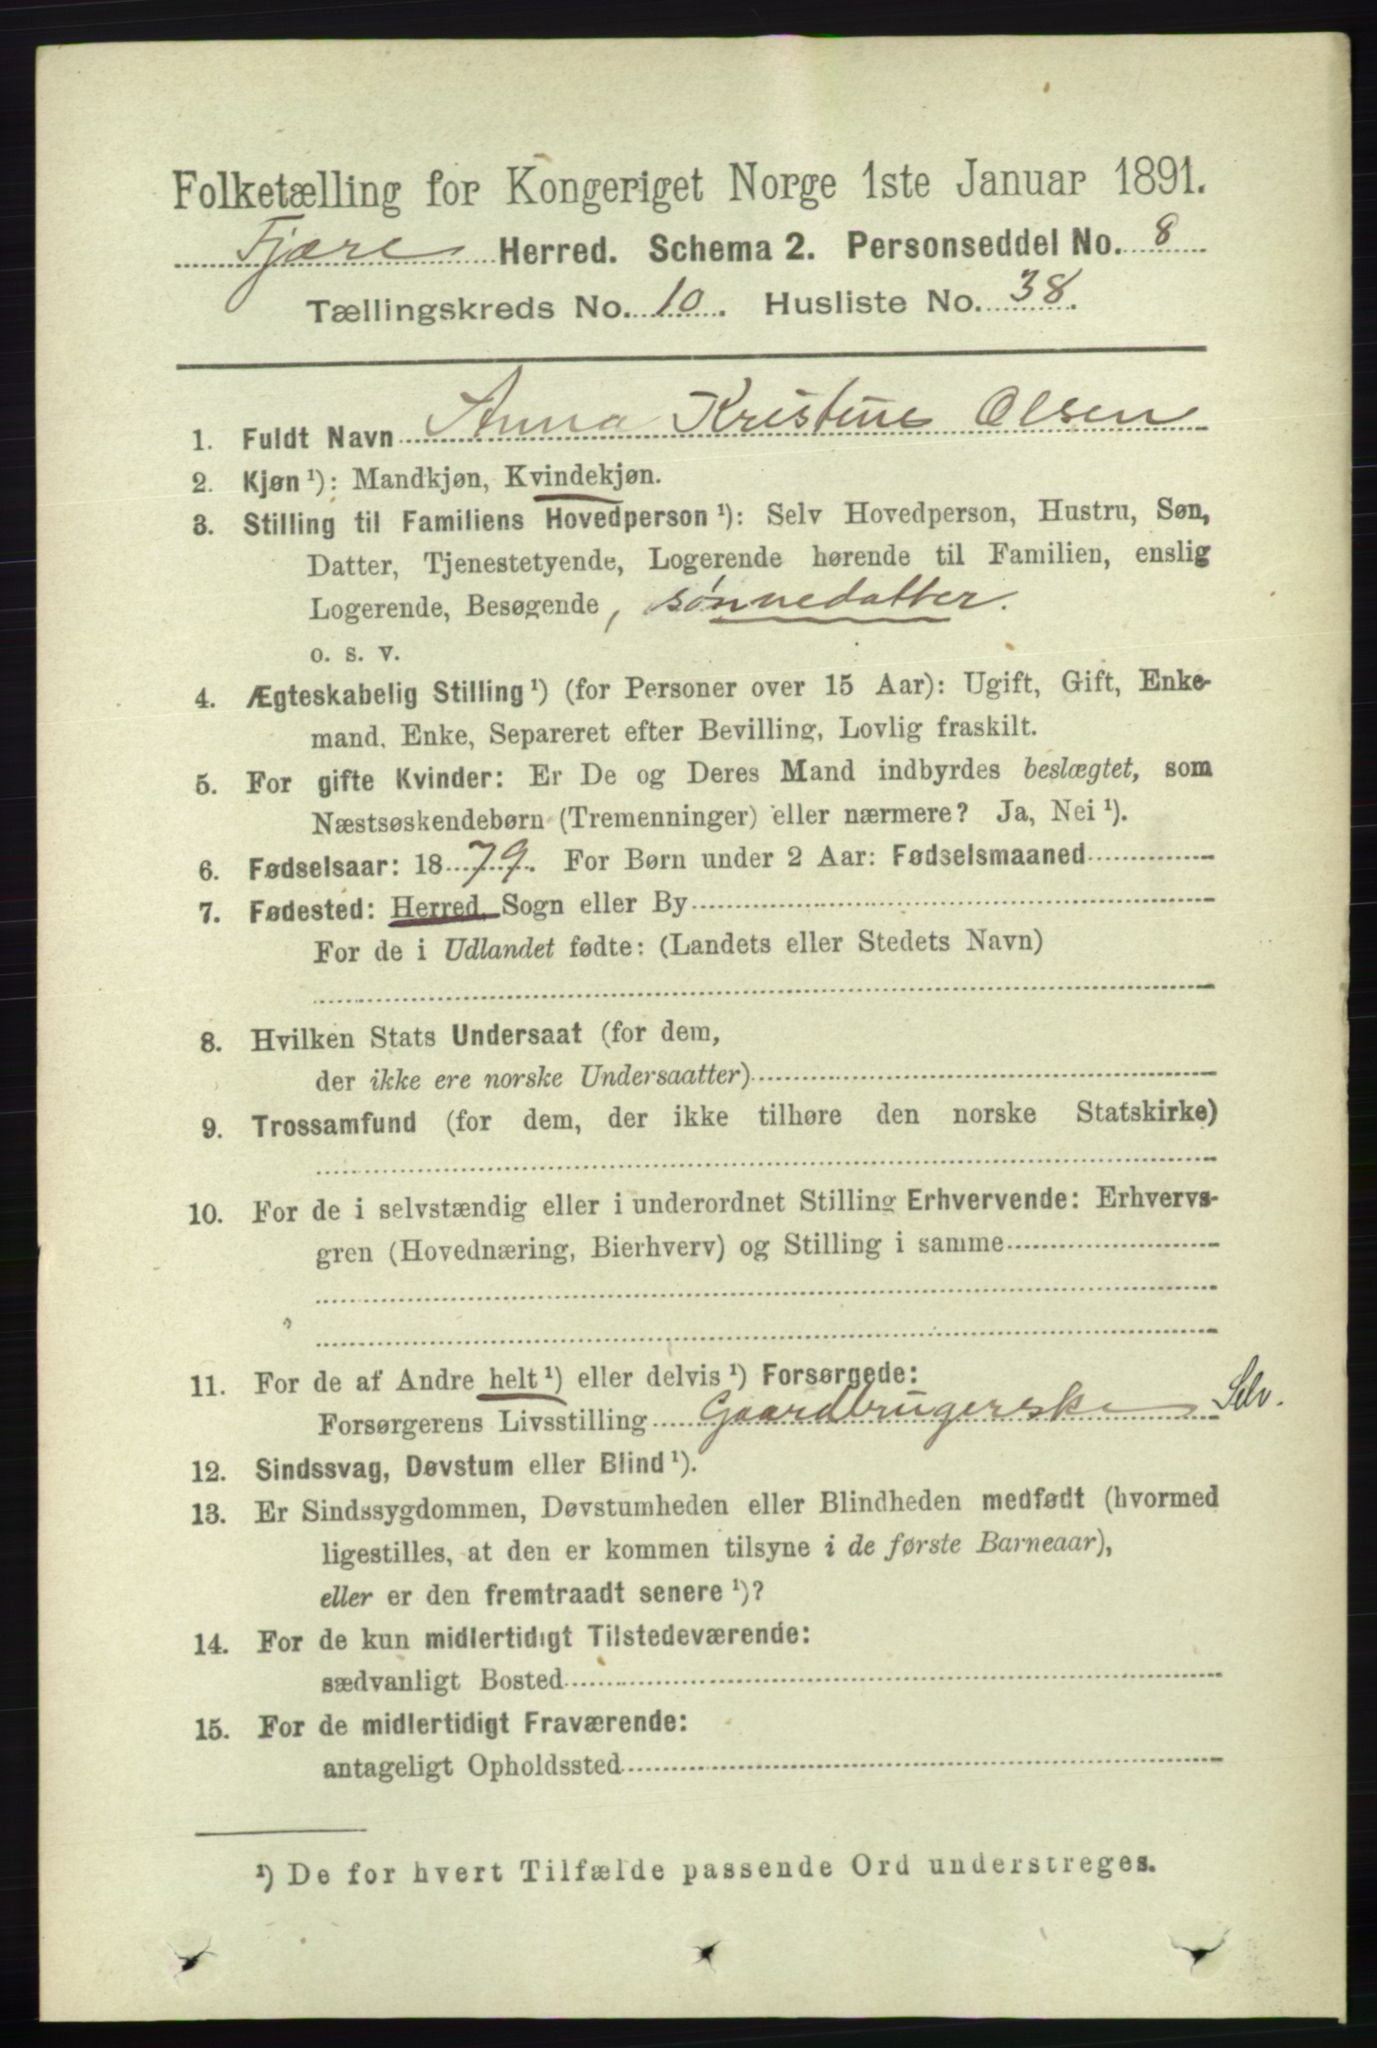 Folketælling for Kongeriget Norge 1ste Januar 1891.
Fjære Herred. Schema 2. Personseddel No. 8
Tællingskreds No. 10. Husliste No. 38.
1. Fuldt Navn Anna Kristine Olsen
2. Kjøn¹): Mandkjøn, Kvindekjøn.
3. Stilling til Familiens Hovedperson¹): Selv Hovedperson, Hustru, Søn,
Datter, Tjenestetyende, Logerende hørende til Familien, enslig
Logerende, Besøgende, sønnedatter.
o. s. v.
4. Ægteskabelig Stilling¹) (for Personer over 15 Aar): Ugift, Gift, Enke-
mand, Enke, Separeret efter Bevilling, Lovlig fraskilt.
5. For gifte Kvinder: Er De og Deres Mand indbyrdes beslægtet, som
Næstsøskendebørn (Tremenninger) eller nærmere? Ja, Nei¹).
6. Fødselsaar: 1879. For Børn under 2 Aar: Fødselsmaaned
7. Fødested: Herred, Sogn eller By
For de i Udlandet fødte: (Landets eller Stedets Navn)
8. Hvilken Stats Undersaat (for dem,
der ikke ere norske Undersaatter)
9. Trossamfund (for dem, der ikke tilhøre den norske Statskirke)
10. For de i selvstændig eller i underordnet Stilling Erhvervende: Erhvervs-
gren (Hovednæring, Bierhverv) og Stilling i samme
11. For de af Andre helt¹) eller delvis¹) Forsørgede:
Forsørgerens Livsstilling Gaardbrugerske Selv.
12. Sindssvag, Døvstum eller Blind¹).
13. Er Sindssygdommen, Døvstumheden eller Blindheden medfødt (hvormed
ligestilles, at den er kommen tilsyne i de første Barneaar),
eller er den fremtraadt senere¹)?
14. For de kun midlertidigt Tilstedeværende:
sædvanligt Bosted
15. For de midlertidigt Fraværende:
antageligt Opholdssted
¹) De for hvert Tilfælde passende Ord understreges.